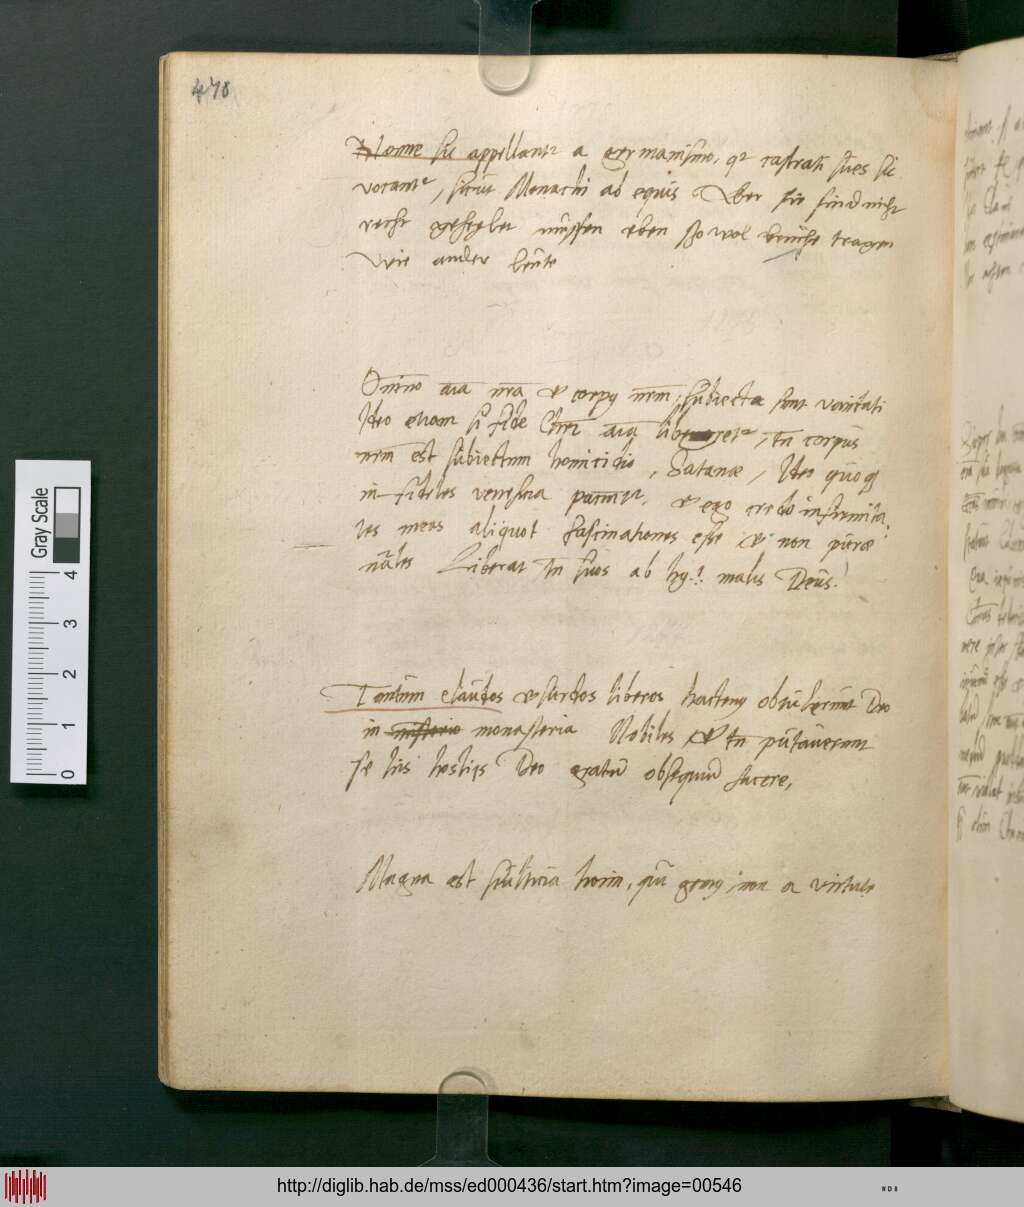 470
Nonne sic appellantr a germanismo, qr castrati sues sic
vocantr, sicut Monachi ab equis. Aber sie sind nicht
recht geheylet mussen eben so wol bruche tragen
wie ander leute
Omnino aīa nr̄a et corpus nr̄m subiecta sunt
Ideo etiam si fide Chr̄i aīa liberetr, tn̄ corpus
nr̄m est subiectum homicidio, Satanae, Ideo quoq
infideles veneficia patiuntr. et ego credo infirmita
tes meas aliquot fascinationes esse et non
nāles Liberat tn̄ suos ab his malis Deus.
Tantum claudos et surdos liberos hactenus obtulerunt Deo
in monasteria Nobiles et tn̄ putaverunt
se his hostiis Deo gratū obsequiū facere,
Magna est stultitia hoīm, non a virtute
Gray Scale
0 1 2 3 4
http://diglib.hab.de/mss/ed000436/start.htm?image=00546